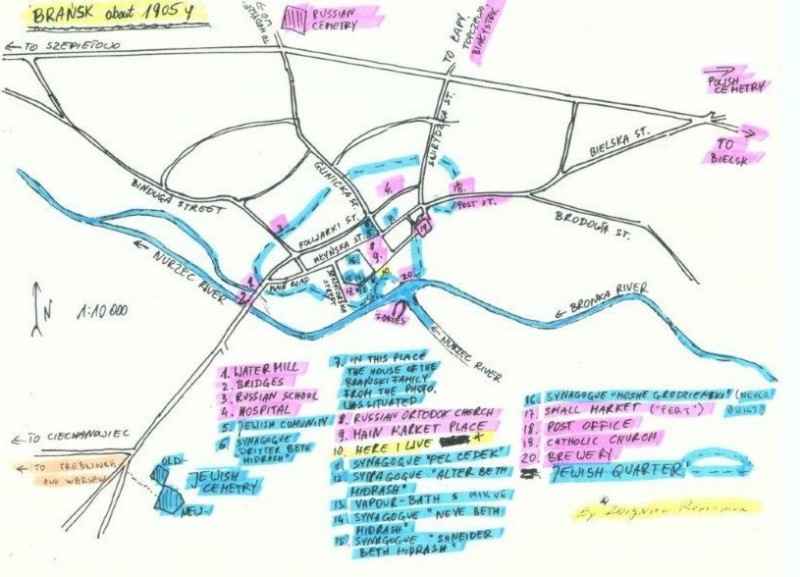 BRAŃSK about 1905 y
RUSSIAN
CEMETRY
← TO SZEPIETOWO
TO ŁAPY
BIAŁYSTOK
POLISH
CEMETRY
TO
BIELSK
BIELSKA ST.
BINDUGA STREET
3.
4.
18.
POST ST.
BRODOGIA ST.
FOLWARKI ST.
MŁYŃSKA ST.
9.
10
20.
2.
NURZEC RIVER
BRONKA RIVER
NURZEC RIVER
N
1:10 000
1. WATER MILL
2. BRIDGES
3. RUSSIAN SCHOOL
4. HOSPITAL
5. JEWISH COMUNITY
6. SYNAGOGUE
"DRITTER BETH
MIDRASH"
7. IN THIS PLACE
THE HOUSE OF THE
BRAŃSKI FAMILY
FROM THE PHOTO.
WAS SITUATED
8. RUSSIAN ORTODOK CHERCH
9. MAIN MARKET PLACE
10. HERE I LIVE
SYNAGOGUE "PEL CEDEK"
12. SYNAGOGUE "ALTER BETH
MIDRASH"
13. VAPOUR-BATH & MIKVE
14. SYNAGOGUE "NEVE BETH
MIDRASH"
15. SYNAGOGUE "SHNEIDER
BETH MIDRASH"
16. SYNAGOGUE "MOSHE
17. SMALL MARKET
18. POST OFFICE
19. CATHOLIC CHURCH
20. BREWERY
JEWISH QUARTER
← TO CIECHANOWIEC
← TO TREBLINKA
AND WARSAW
OLD
JEWISH
CEMETRY
NEW
By Zbigniew